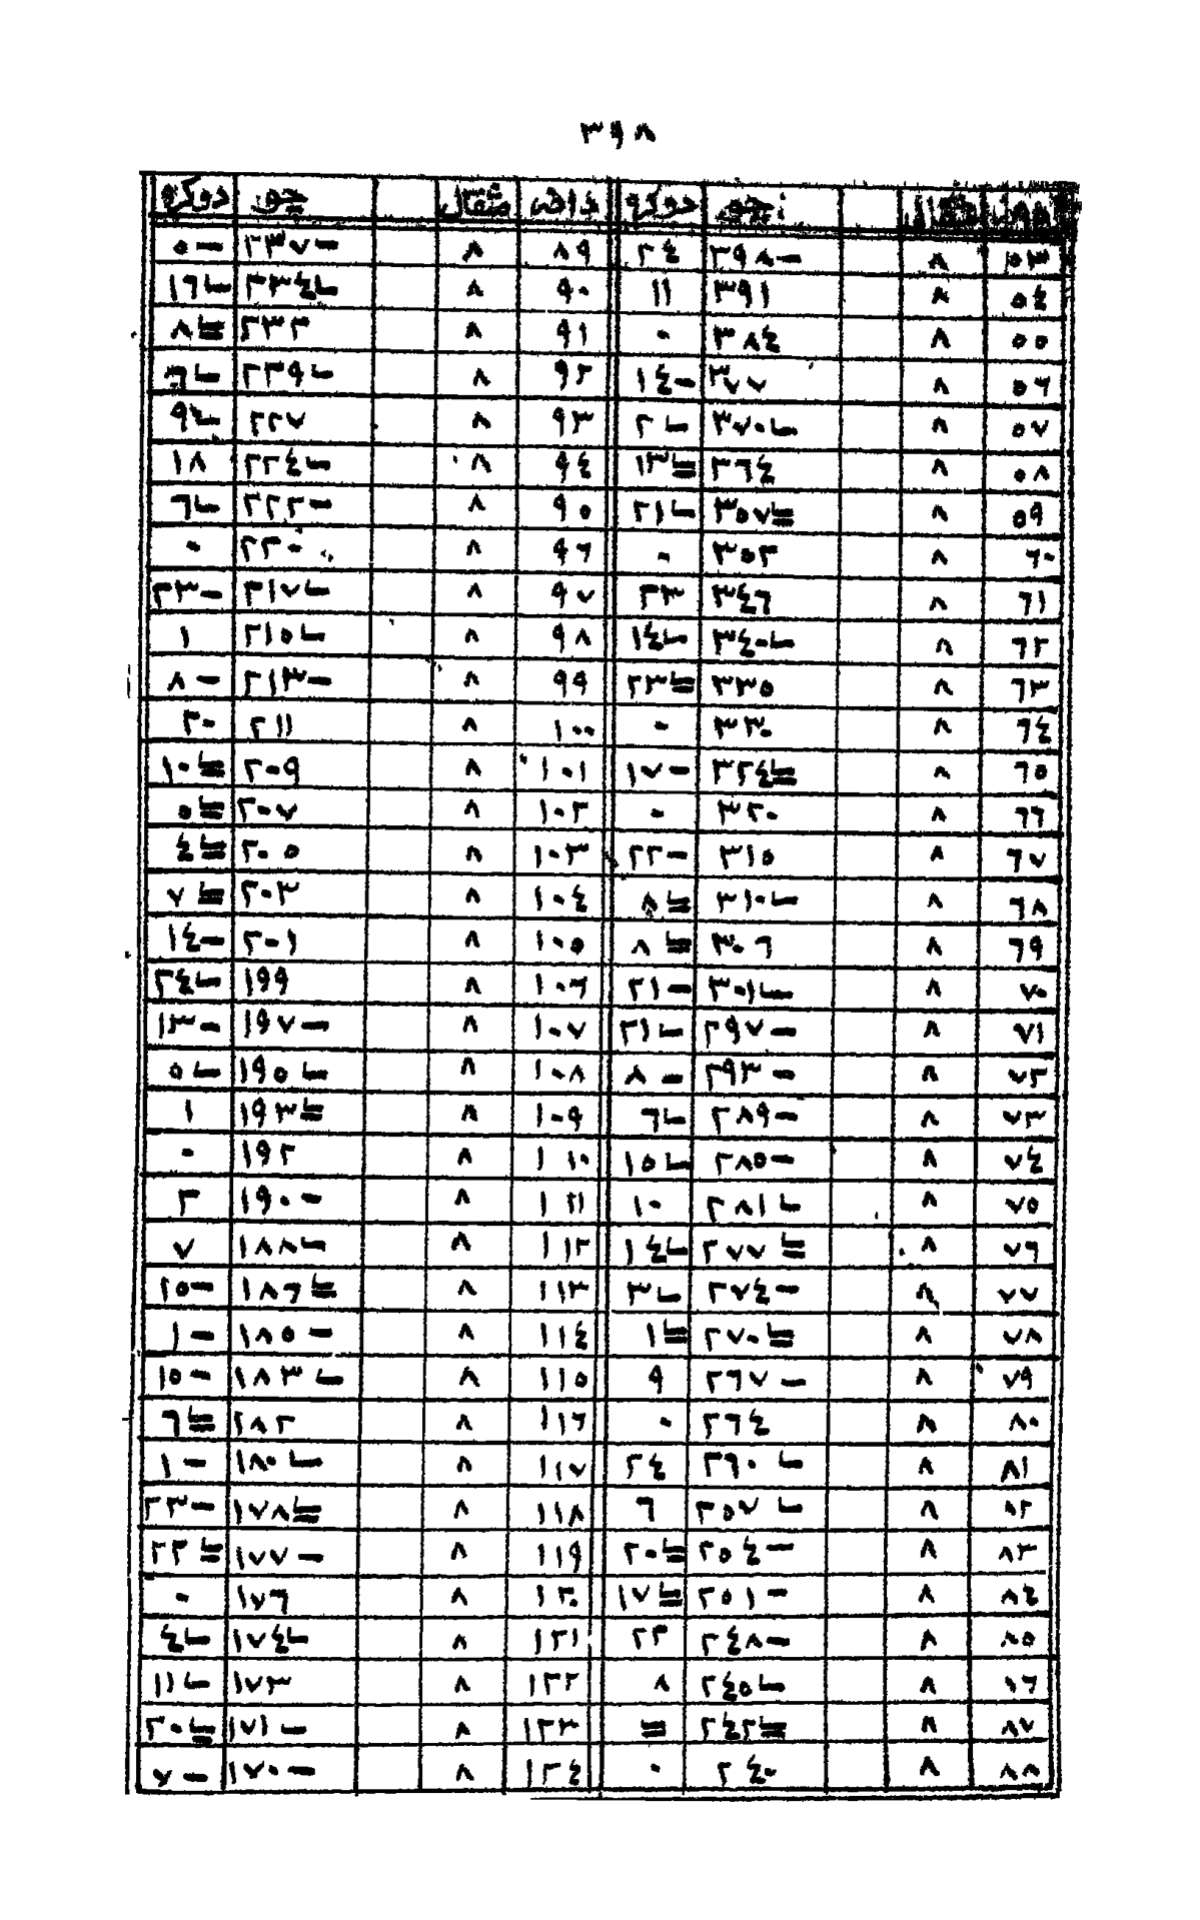 ٣٩٨
دانه مثقال چو دوكره دانه مثقال چو دوكره
٥٣ ٨ ٣٩٨- ٢٤ ٨٩ ٨ ٢٣٧- ٥-
٥٤ ٨ ٣٩١ ١١ ٩٠ ٨ ٢٣٤ـا ١٦ـا
٥٥ ٨ ٣٨٤ ٠ ٩١ ٨ ٢٣٢ ٨≡
٥٦ ٨ ٣٧٧ ١٤- ٩٢ ٨ ٢٢٩ـا ٦ـا
٥٧ ٨ ٣٧٠ـا ٢ـا ٩٣ ٨ ٢٢٧ ٩ـا
٥٨ ٨ ٣٦٤ ١٣≡ ٩٤ ٨ ٢٢٤ـا ١٨
٥٩ ٨ ٣٥٧≡ ٢١ـا ٩٥ ٨ ٢٢٢- ٦ـا
٦٠ ٨ ٣٥٢ ٠ ٩٦ ٨ ٢٢٠ ٠
٦١ ٨ ٣٤٦ ٢٣ ٩٧ ٨ ٢١٧ـا ٢٣-
٦٢ ٨ ٣٤٠ـا ١٤ـا ٩٨ ٨ ٢١٥ـا ١
٦٣ ٨ ٣٣٥ ٢٣≡ ٩٩ ٨ ٢١٣- ٨-
٦٤ ٨ ٣٣٠ ٠ ١٠٠ ٨ ٢١١ ٢٠
٦٥ ٨ ٣٢٤≡ ١٧- ١٠١ ٨ ٢٠٩ ١٠≡
٦٦ ٨ ٣٢٠ ٠ ١٠٢ ٨ ٢٠٧ ٥≡
٦٧ ٨ ٣١٥ ٢٢- ١٠٣ ٨ ٢٠٥ ٤≡
٦٨ ٨ ٣١٠ـا ٨≡ ١٠٤ ٨ ٢٠٣ ٧≡
٦٩ ٨ ٣٠٦ ٨≡ ١٠٥ ٨ ٢٠١ ١٤-
٧٠ ٨ ٣٠١ـا ٢١- ١٠٦ ٨ ١٩٩ ٢٤ـا
٧١ ٨ ٢٩٧- ٢١ـا ١٠٧ ٨ ١٩٧- ١٣-
٧٢ ٨ ٢٩٣- ٨- ١٠٨ ٨ ١٩٥ـا ٥ـا
٧٣ ٨ ٢٨٩- ٦ـا ١٠٩ ٨ ١٩٣≡ ١
٧٤ ٨ ٢٨٥- ١٥ـا ١١٠ ٨ ١٩٢ ٠
٧٥ ٨ ٢٨١ـا ١٠ ١١١ ٨ ١٩٠- ٢
٧٦ ٨ ٢٧٧≡ ١٤ـا ١١٢ ٨ ١٨٨ـا ٧
٧٧ ٨ ٢٧٤- ٣ـا ١١٣ ٨ ١٨٦≡ ١٥-
٧٨ ٨ ٢٧٠≡ ١≡ ١١٤ ٨ ١٨٥- ١-
٧٩ ٨ ٢٦٧- ٩ ١١٥ ٨ ١٨٣ـا ١٥-
٨٠ ٨ ٢٦٤ ٠ ١١٦ ٨ ١٨٢ ٦≡
٨١ ٨ ٢٦٠ـا ٢٤ ١١٧ ٨ ١٨٠ـا ١-
٨٢ ٨ ٢٥٧ـا ٦ ١١٨ ٨ ١٧٨≡ ٢٣-
٨٣ ٨ ٢٥٤- ٢٠≡ ١١٩ ٨ ١٧٧- ٢٢≡
٨٤ ٨ ٢٥١- ١٧≡ ١٢٠ ٨ ١٧٦ ٠
٨٥ ٨ ٢٤٨- ٢٣ ١٢١ ٨ ١٧٤ـا ٤ـا
٨٦ ٨ ٢٤٥ـا ٨ ١٢٢ ٨ ١٧٣ ١١ـا
٨٧ ٨ ٢٤٢≡ = ١٢٣ ٨ ١٧١ـا ٢٠≡
٨٨ ٨ ٢٤٠ ٠ ١٢٤ ٨ ١٧٠- ٧-